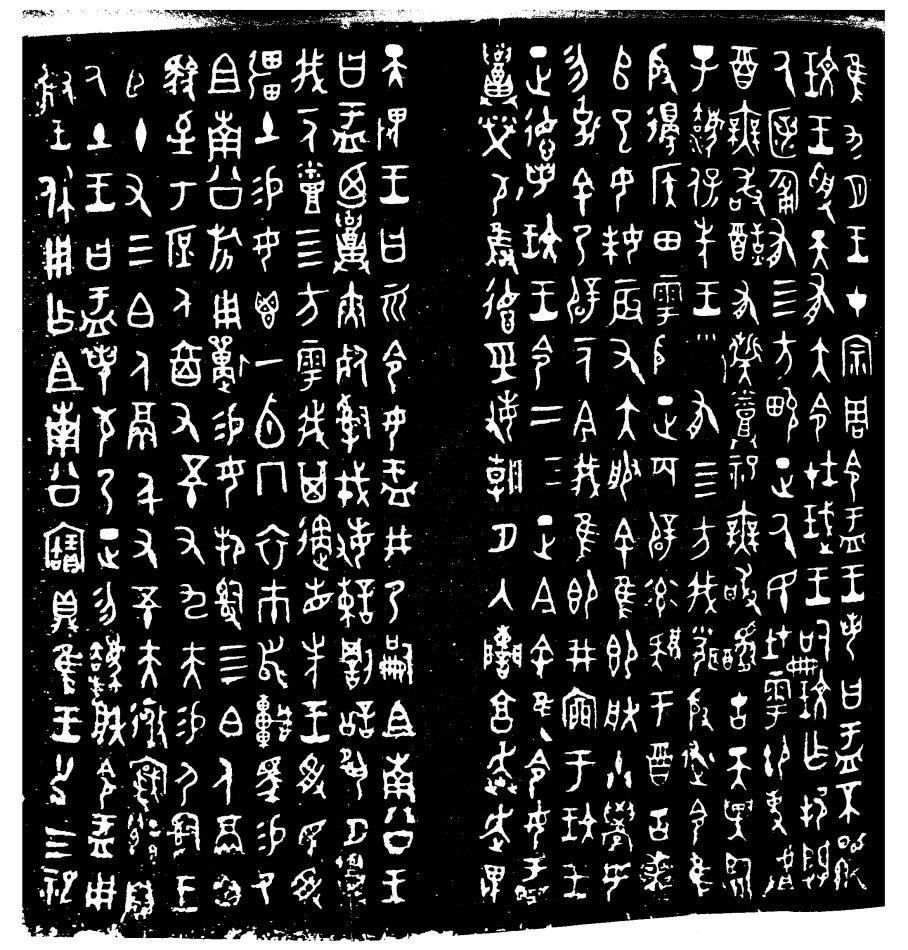 隹九月王才宗周令盂王若曰盂不顯
玟王受天有大令在珷王嗣玟乍邦闢
氒匿匍有四方畯正氒民在𩁹御事𠭯
酉無敢酖有祡烝祀無敢䣱古天異臨
子灋保先王□有四方我聞殷述令隹
殷邊侯田𩁹殷正百辟率肄于酉古喪
𠂤已女妹辰又大服余隹即朕小學女
勿剋余乃辟一人今我隹即井㐭于玟王
正德若玟王令二三正今余隹令女盂
召榮敬雍德巠敏朝夕入讕享奔走畏
天畏王曰而令女盂井乃嗣且南公王
曰盂廼召夾死司戎敏諫罰訟夙夕召
我一人烝四方𩁹我其遹省先王受民受
疆土易女鬯一卣冂衣巿舄車馬易乃
且南公旂用狩易女邦司四白人鬲自
馭至于庶人六百又五十又九夫易尸司王
臣十又三白人鬲千又五十夫□□遷自
氒土王曰盂若敬乃正勿灋朕令盂用
對王休用乍且南公寶鼎隹王廿又三祀